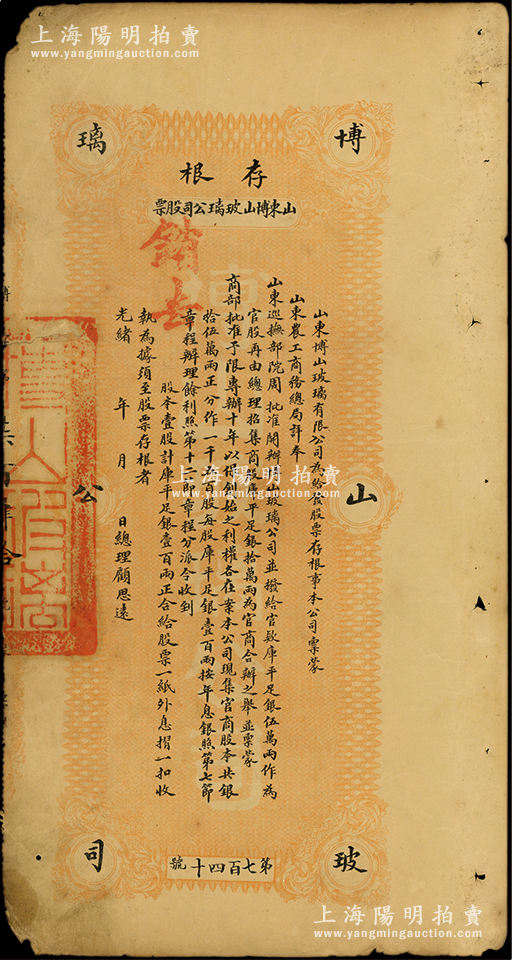 上海陽明拍賣
www.yangmingauction.com
博
山
玻
璃
公
司
存根
山東博山玻璃公司股票
山東博山玻璃有限公司為給發股票存根事本公司稟蒙
山東農工商務總局詳奉
山東巡撫部院周 批准開辦博山玻璃公司並撥給官款庫平足銀伍萬兩作為
官股再由總理招集商股庫平足銀拾萬兩為官商合辦之舉並稟蒙
商部批准予限專辦十年以保創始之利權各在案本公司現集官商股本共銀
拾伍萬兩正分作一千五百股每股庫平足銀壹百兩按年息銀照第七節
章程辦理餘利照第十三節章程分派今收到
股本壹股計庫平足銀壹百兩正合給股票一紙外息摺一扣收
執為據須至股票存根者
光緒 年 月 日總理顧思遠
第七百四十號
上海陽明拍賣
www.yangmingauction.com